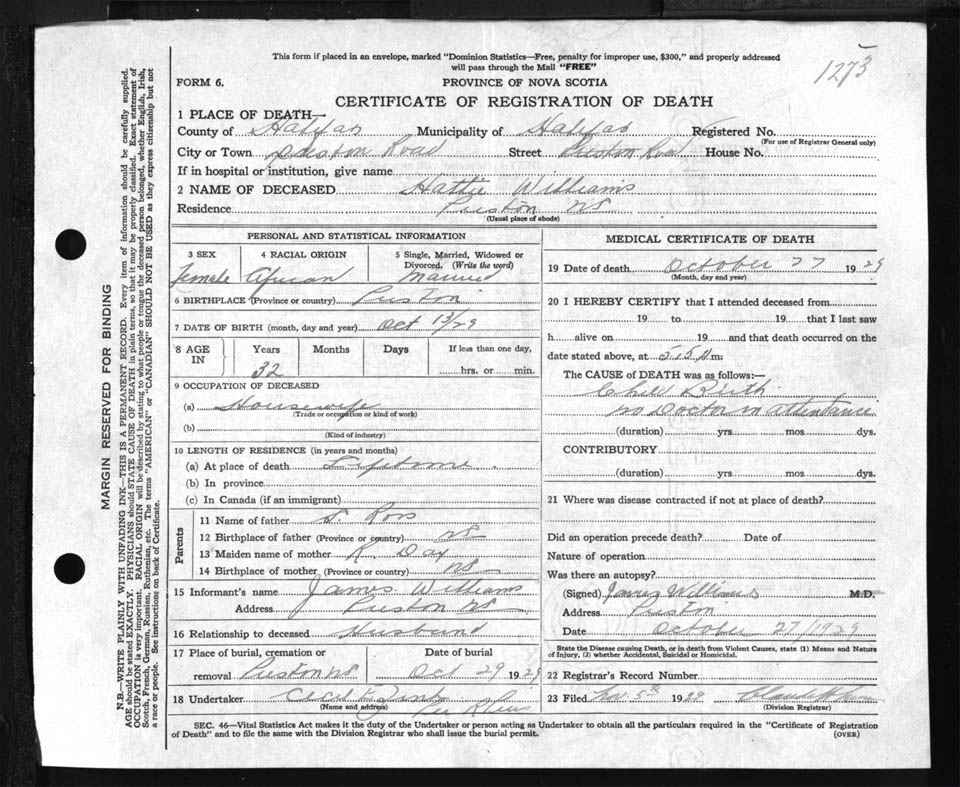 This form if placed in an envelope, marked "Dominion Statistics—Free, penalty for improper use, $300," and properly addressed
will pass through the Mail "FREE"
1273
FORM 6.
PROVINCE OF NOVA SCOTIA
CERTIFICATE OF REGISTRATION OF DEATH
1 PLACE OF DEATH—
County of Halifax Municipality of Halifax Registered No.
(For use of Registrar General only)
City or Town Preston Road Street Preston Road House No.
If in hospital or institution, give name
2 NAME OF DECEASED Hattie Williams
Residence Preston NS
(Usual place of abode)
PERSONAL AND STATISTICAL INFORMATION
3 SEX
female
4 RACIAL ORIGIN
African
5 Single, Married, Widowed or
Divorced. (Write the word)
Married
6 BIRTHPLACE (Province or country) Preston
7 DATE OF BIRTH (month, day and year) Oct 13/29
8 AGE
IN
Years
32
Months
Days
If less than one day,
hrs. or min.
9 OCCUPATION OF DECEASED
(a) Housewife
(Trade or occupation or kind of work)
(b)
(Kind of industry)
10 LENGTH OF RESIDENCE (in years and months)
(a) At place of death Lifetime
(b) In province
(c) In Canada (if an immigrant)
Parents
11 Name of father S. Ross
12 Birthplace of father (Province or country) NS
13 Maiden name of mother K. Day
14 Birthplace of mother (Province or country) NS
15 Informant's name James Williams
Address Preston NS
16 Relationship to deceased Husband
17 Place of burial, cremation or
removal Preston NS
Date of burial
Oct 29 1929
18 Undertaker Cecil E
(Name and address)
MEDICAL CERTIFICATE OF DEATH
19 Date of death October 27 1929
(Month, day and year)
20 I HEREBY CERTIFY that I attended deceased from
19 to 19 that I last saw
h alive on 19 and that death occurred on the
date stated above, at m:
The CAUSE OF DEATH was as follows:—
Child Birth
no Doctor in attentance
(duration) yrs. mos. dys.
CONTRIBUTORY
(duration) yrs. mos. dys.
21 Where was disease contracted if not at place of death?
Did an operation precede death? Date of
Nature of operation
Was there an autopsy?
(Signed) James Williams M.D.
Address Preston
Date October 27/1929
State the Disease causing Death, or in death from Violent Causes, state (1) Means and Nature
of Injury, (2) whether Accidental, Suicidal or Homicidal.
22 Registrar's Record Number
23 Filed Nov. 5th 1929
(Division Registrar)
SEC. 46—Vital Statistics Act makes it the duty of the Undertaker or person acting as Undertaker to obtain all the particulars required in the "Certificate of Registration
of Death" and to file the same with the Division Registrar who shall issue the burial permit.
(OVER)
MARGIN RESERVED FOR BINDING
N.B.—WRITE PLAINLY WITH UNFADING INK—THIS IS A PERMANENT RECORD. Every item of information should be carefully supplied.
AGE should be stated EXACTLY. PHYSICIANS should STATE CAUSE OF DEATH in plain terms, so that it may be properly classified. Exact statement of
OCCUPATION is very important. RACIAL ORIGIN will be described by stating to what people or tongue the deceased person belonged, whether English, Irish,
Scotch, French, German, Russian, Ruthenian, etc. The terms "AMERICAN" or "CANADIAN" SHOULD NOT BE USED as they express citizenship but not
a race or people. See instructions on back of Certificate.